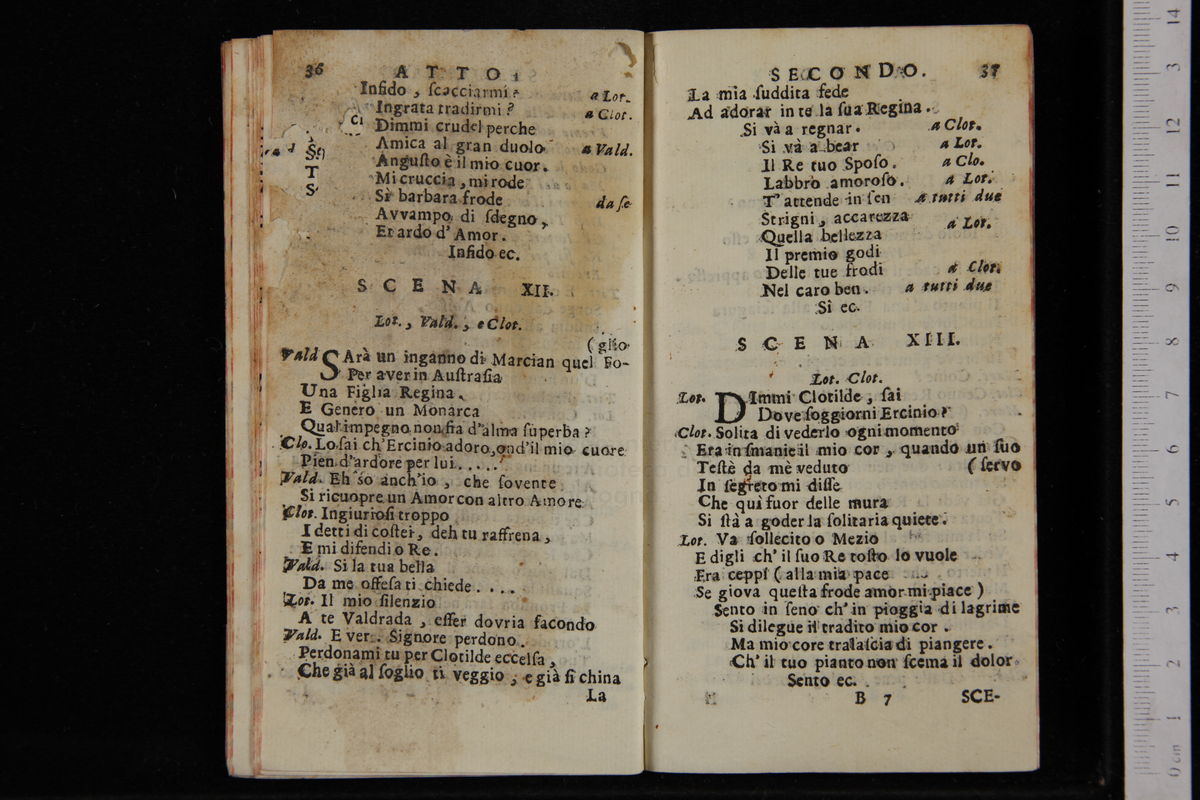 36 ATTO
Infido, ſcacciarmi? a Lot.
Ingrata tradirmi? a Clot.
Dimmi crudel perche
Amica al gran duolo a Vald.
Anguſto è il mio cuor.
Mi cruccia, mi rode
Sì barbara frode da ſe
Avvampo di ſdegno,
Et ardo d'Amor.
Infido ec.
SCENA XII.
Lot., Vald., e Clot.
(glio
Vald SArà un inganno di Marcian quel Fo-
Per aver in Auſtraſia
Una Figlia Regina.
E Genero un Monarca
Qual impegno non fia d'alma ſuperba?
Clo. Lo ſai ch'Ercinio adoro, ond'il mio cuore
Pien d'ardore per lui.....
Vald. Eh ſo anch'io, che ſovente
Si ricuopre un Amor con altro Amore
Clot. Ingiurioſi troppo
I detti di coſtei, deh tu raffrena,
E mi difendi o Re.
Vald. Si la tua bella
Da me offeſa ti chiede....
Lot. Il mio ſilenzio
A te Valdrada, eſſer dovria facondo
Vald. E ver. Signore perdono.
Perdonami tu per Clotilde eccelſa,
Che già al ſoglio ti veggio, e già ſi china
La
SECONDO. 37
La mia ſuddita fede
Ad adorar in te la ſua Regina.
Si và a regnar. a Clot.
Si và a bear a Lot.
Il Re tuo Spoſo. a Clo.
Labbro amoroſo. a Lot.
T'attende in ſen a tutti due
Strigni, accarezza
a Lot.
Quella bellezza
Il premio godi
Delle tue frodi a Clot.
Nel caro ben. a tutti due
Si ec.
SCENA XIII.
Lot. Clot.
Lot. DImmi Clotilde, ſai
Dove ſoggiorni Ercinio?
Clot. Solita di vederlo ogni momento
Era in ſmanie il mio cor, quando un ſuo
Teſtè da mè veduto (ſervo
In ſegreto mi diſſe
Che qui fuor delle mura
Si ſtà a goder la ſolitaria quiete.
Lot. Va ſollecito o Mezio
E digli ch'il ſuo Re toſto lo vuole
Fra ceppi (alla mia pace
Se giova queſta frode amor mi piace)
Sento in ſeno ch'in pioggia di lagrime
Si dilegue il tradito mio cor.
Ma mio core tralaſcia di piangere.
Ch'il tuo pianto non ſcema il dolor
Sento ec.
B 7 SCE-